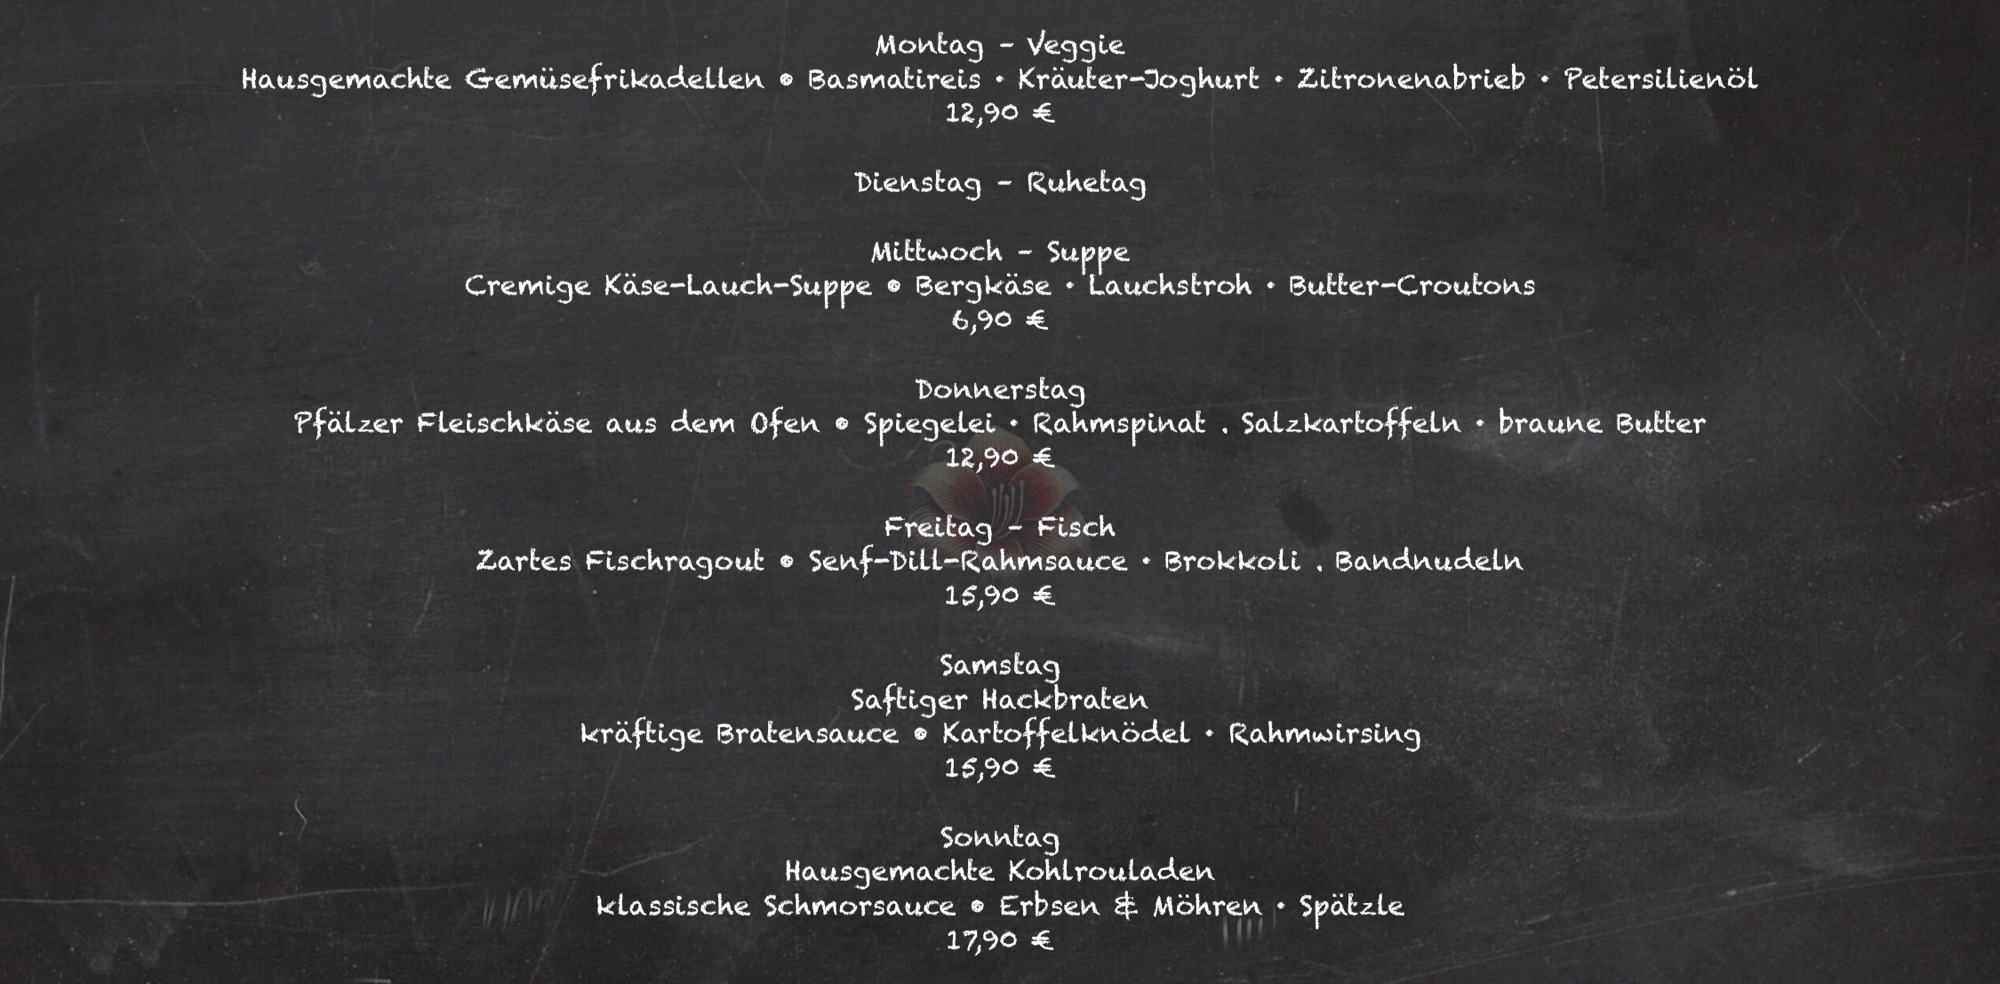 Montag - Veggie
Hausgemachte Gemüsefrikadellen • Basmatireis · Kräuter-Joghurt · Zitronenabrieb · Petersilienöl
12,90 €
Dienstag - Ruhetag
Mittwoch - Suppe
Cremige Käse-Lauch-Suppe • Bergkäse · Lauchstroh · Butter-Croutons
6,90 €
Donnerstag
Pfälzer Fleischkäse aus dem Ofen • Spiegelei · Rahmspinat . Salzkartoffeln · braune Butter
12,90 €
Freitag - Fisch
Zartes Fischragout • Senf-Dill-Rahmsauce · Brokkoli . Bandnudeln
15,90 €
Samstag
Saftiger Hackbraten
kräftige Bratensauce • Kartoffelknödel · Rahmwirsing
15,90 €
Sonntag
Hausgemachte Kohlrouladen
klassische Schmorsauce • Erbsen & Möhren · Spätzle
17,90 €